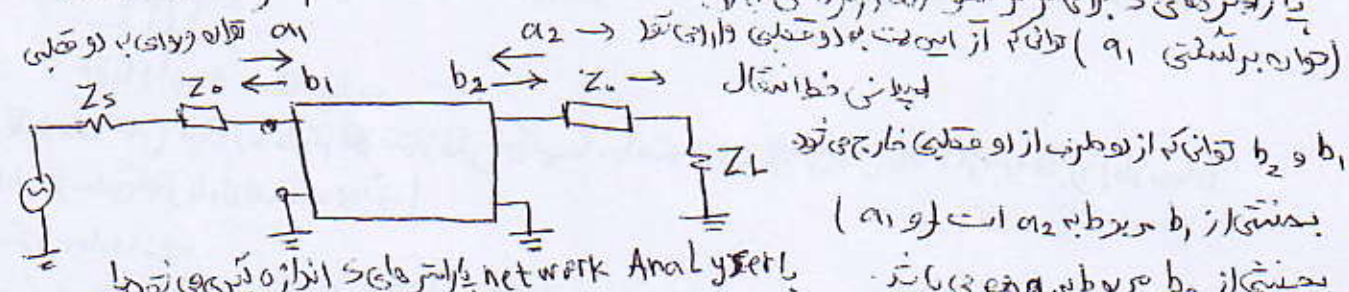 پارامترهای s برای
a1 توان ورودی به دو قطبی
a2 → توانی که از این سمت به دو قطبی وارد می شود (توان برگشتی a1)
Zs Z0 b1 b2 Z0 → امپدانس خط انتقال
ZL
b1 و b2 توانی که از دو طرف از دو قطبی خارج می شود
بخشی از b1 مربوط به a2 است (و a1)
بخشی از b2 مربوط به می باشد
با network Analyzer پارامترهای s اندازه گیری می شوند